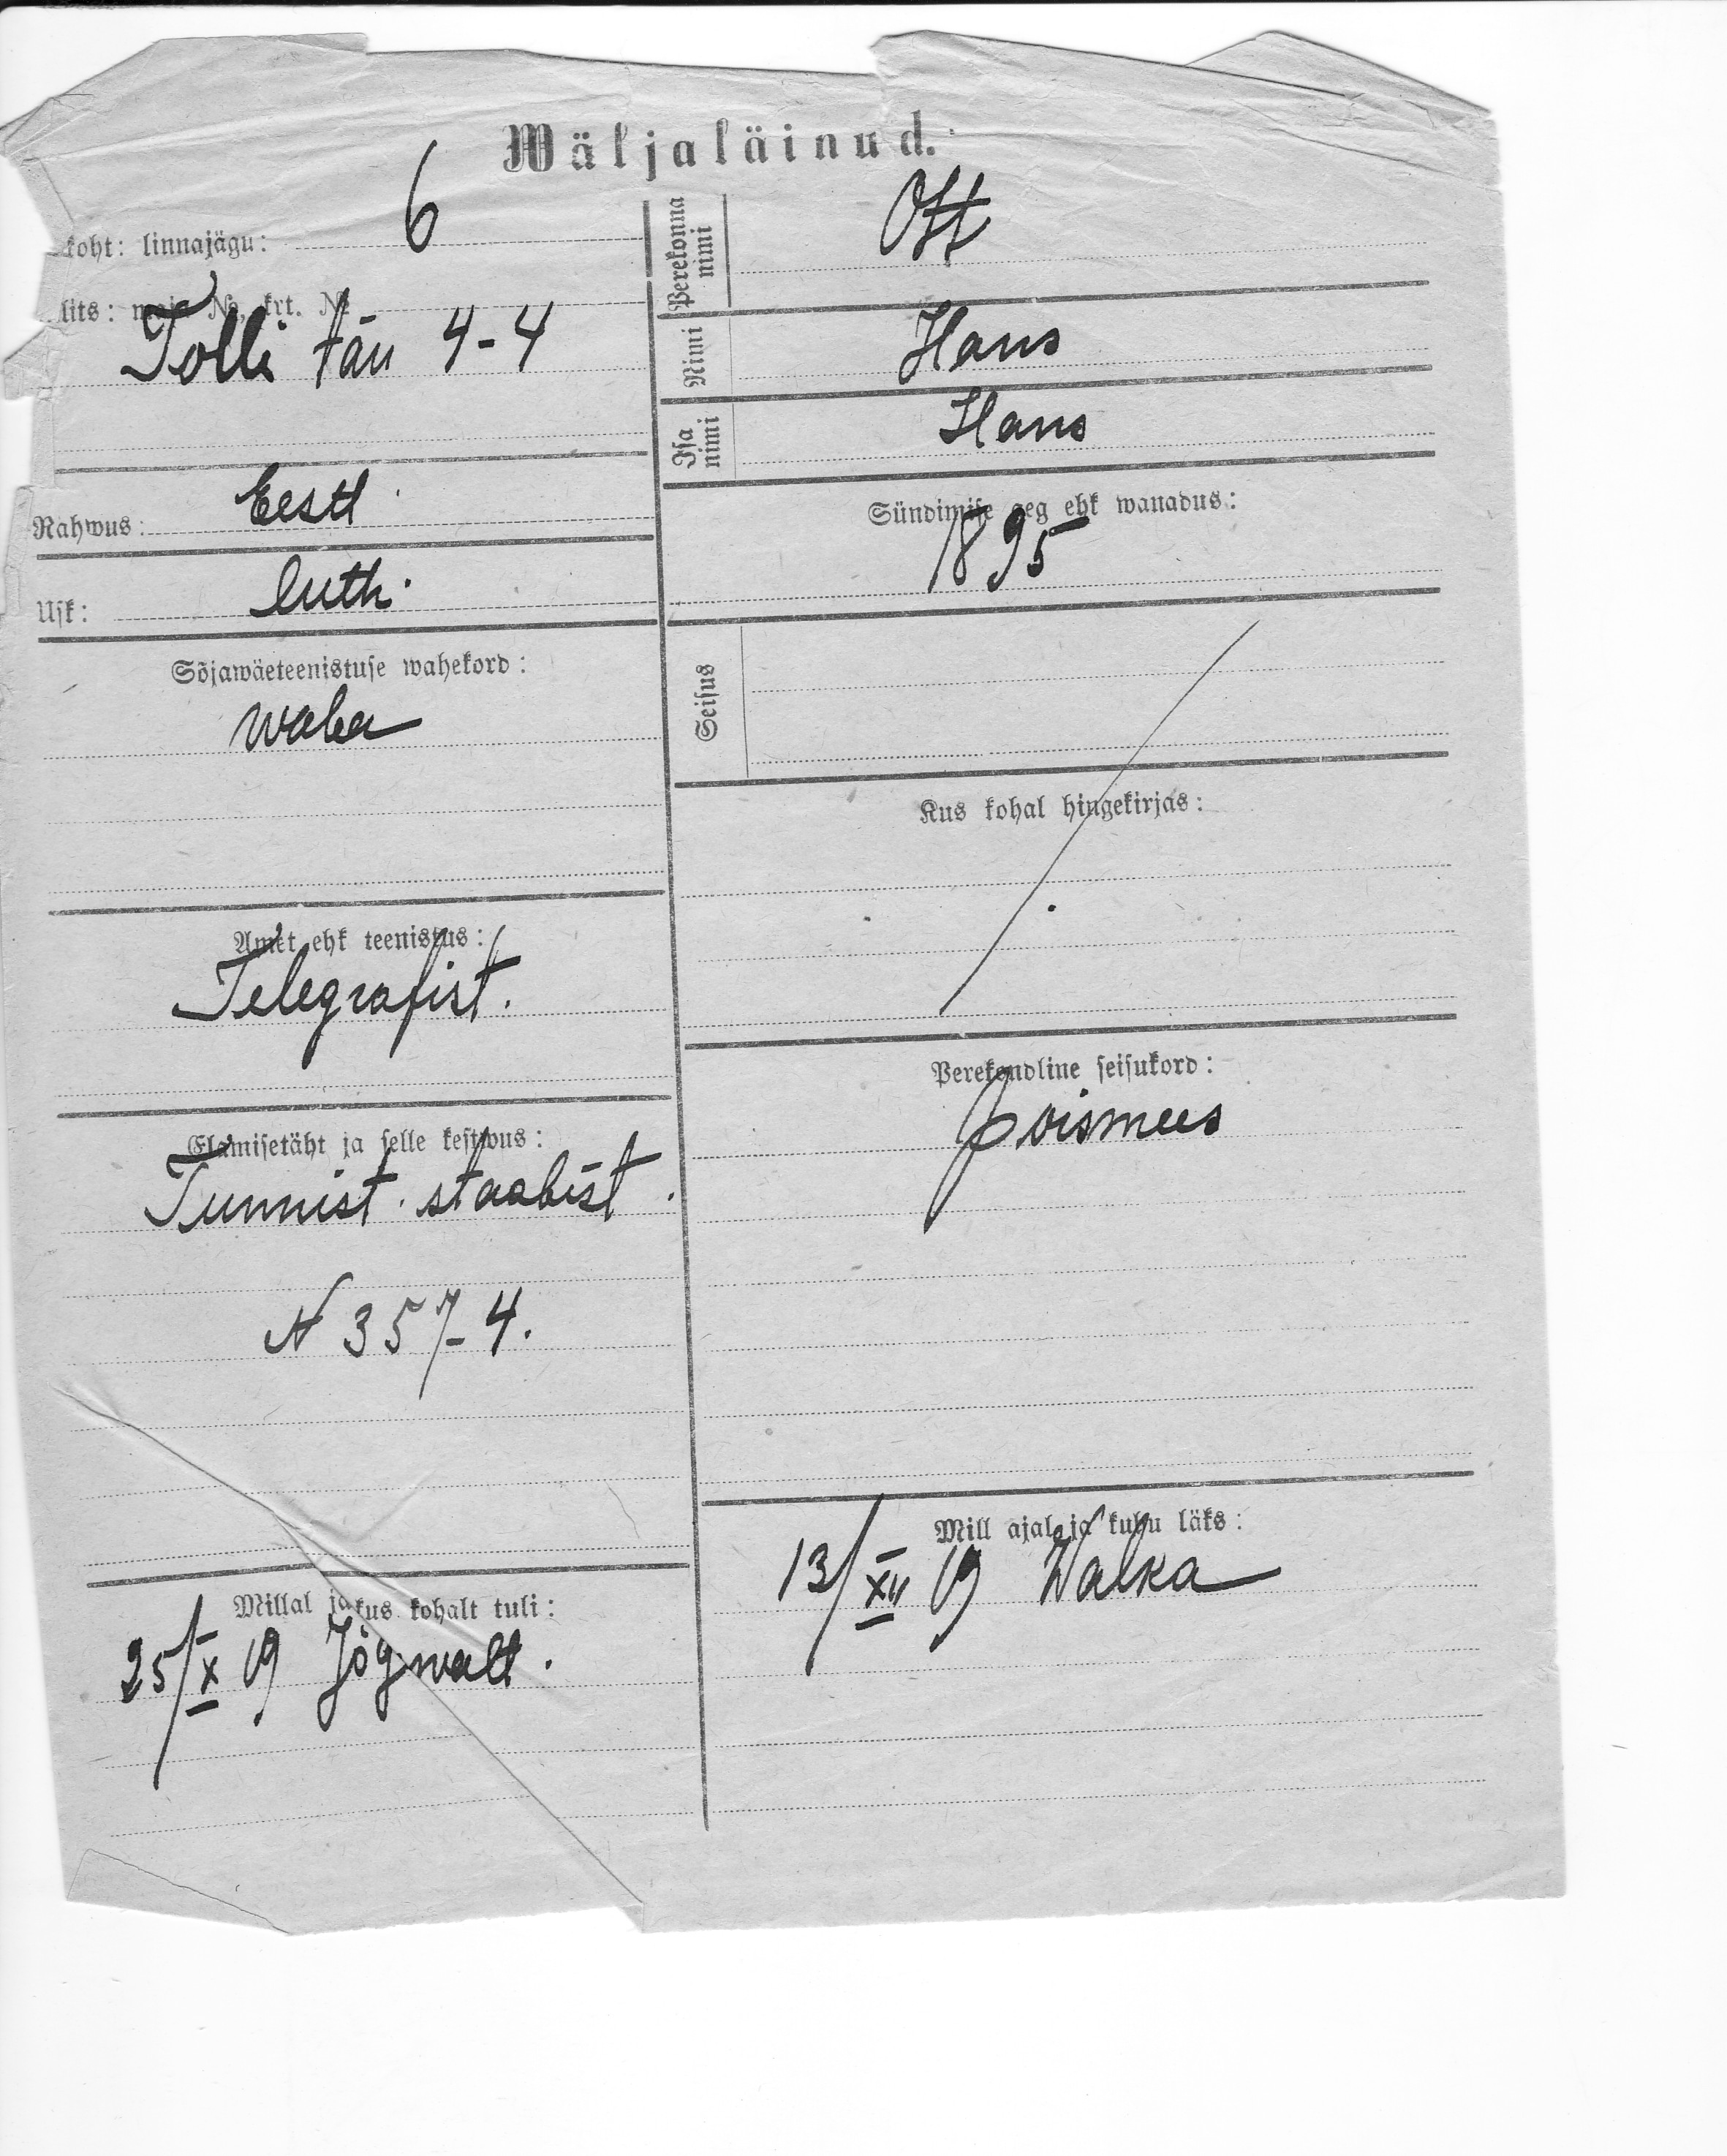 Wäljaläinud.
koht: linnajägu: 6
lits: maja №, krt. №
Tolli tän 4-4
Rahwus: Eestl
Usk: luth.
Sõjawäeteenistuse wahekord:
waba
Amet ehk teenistus:
Telegrafist.
Elamisetäht ja selle kestwus:
Tunnist. staabist.
N 357-4.
Millal ja kus kohalt tuli:
25/X 19 Jõgwalt.
Perekonna nimi Ott
Nimi Hans
Isa nimi Hans
Sündimise aeg ehk wanadus:
1895
Seisus
Kus kohal hingekirjas:
Perekondline seisukord:
Poismees
Mill ajal ja kuhu läks:
13/XII 19 Walka